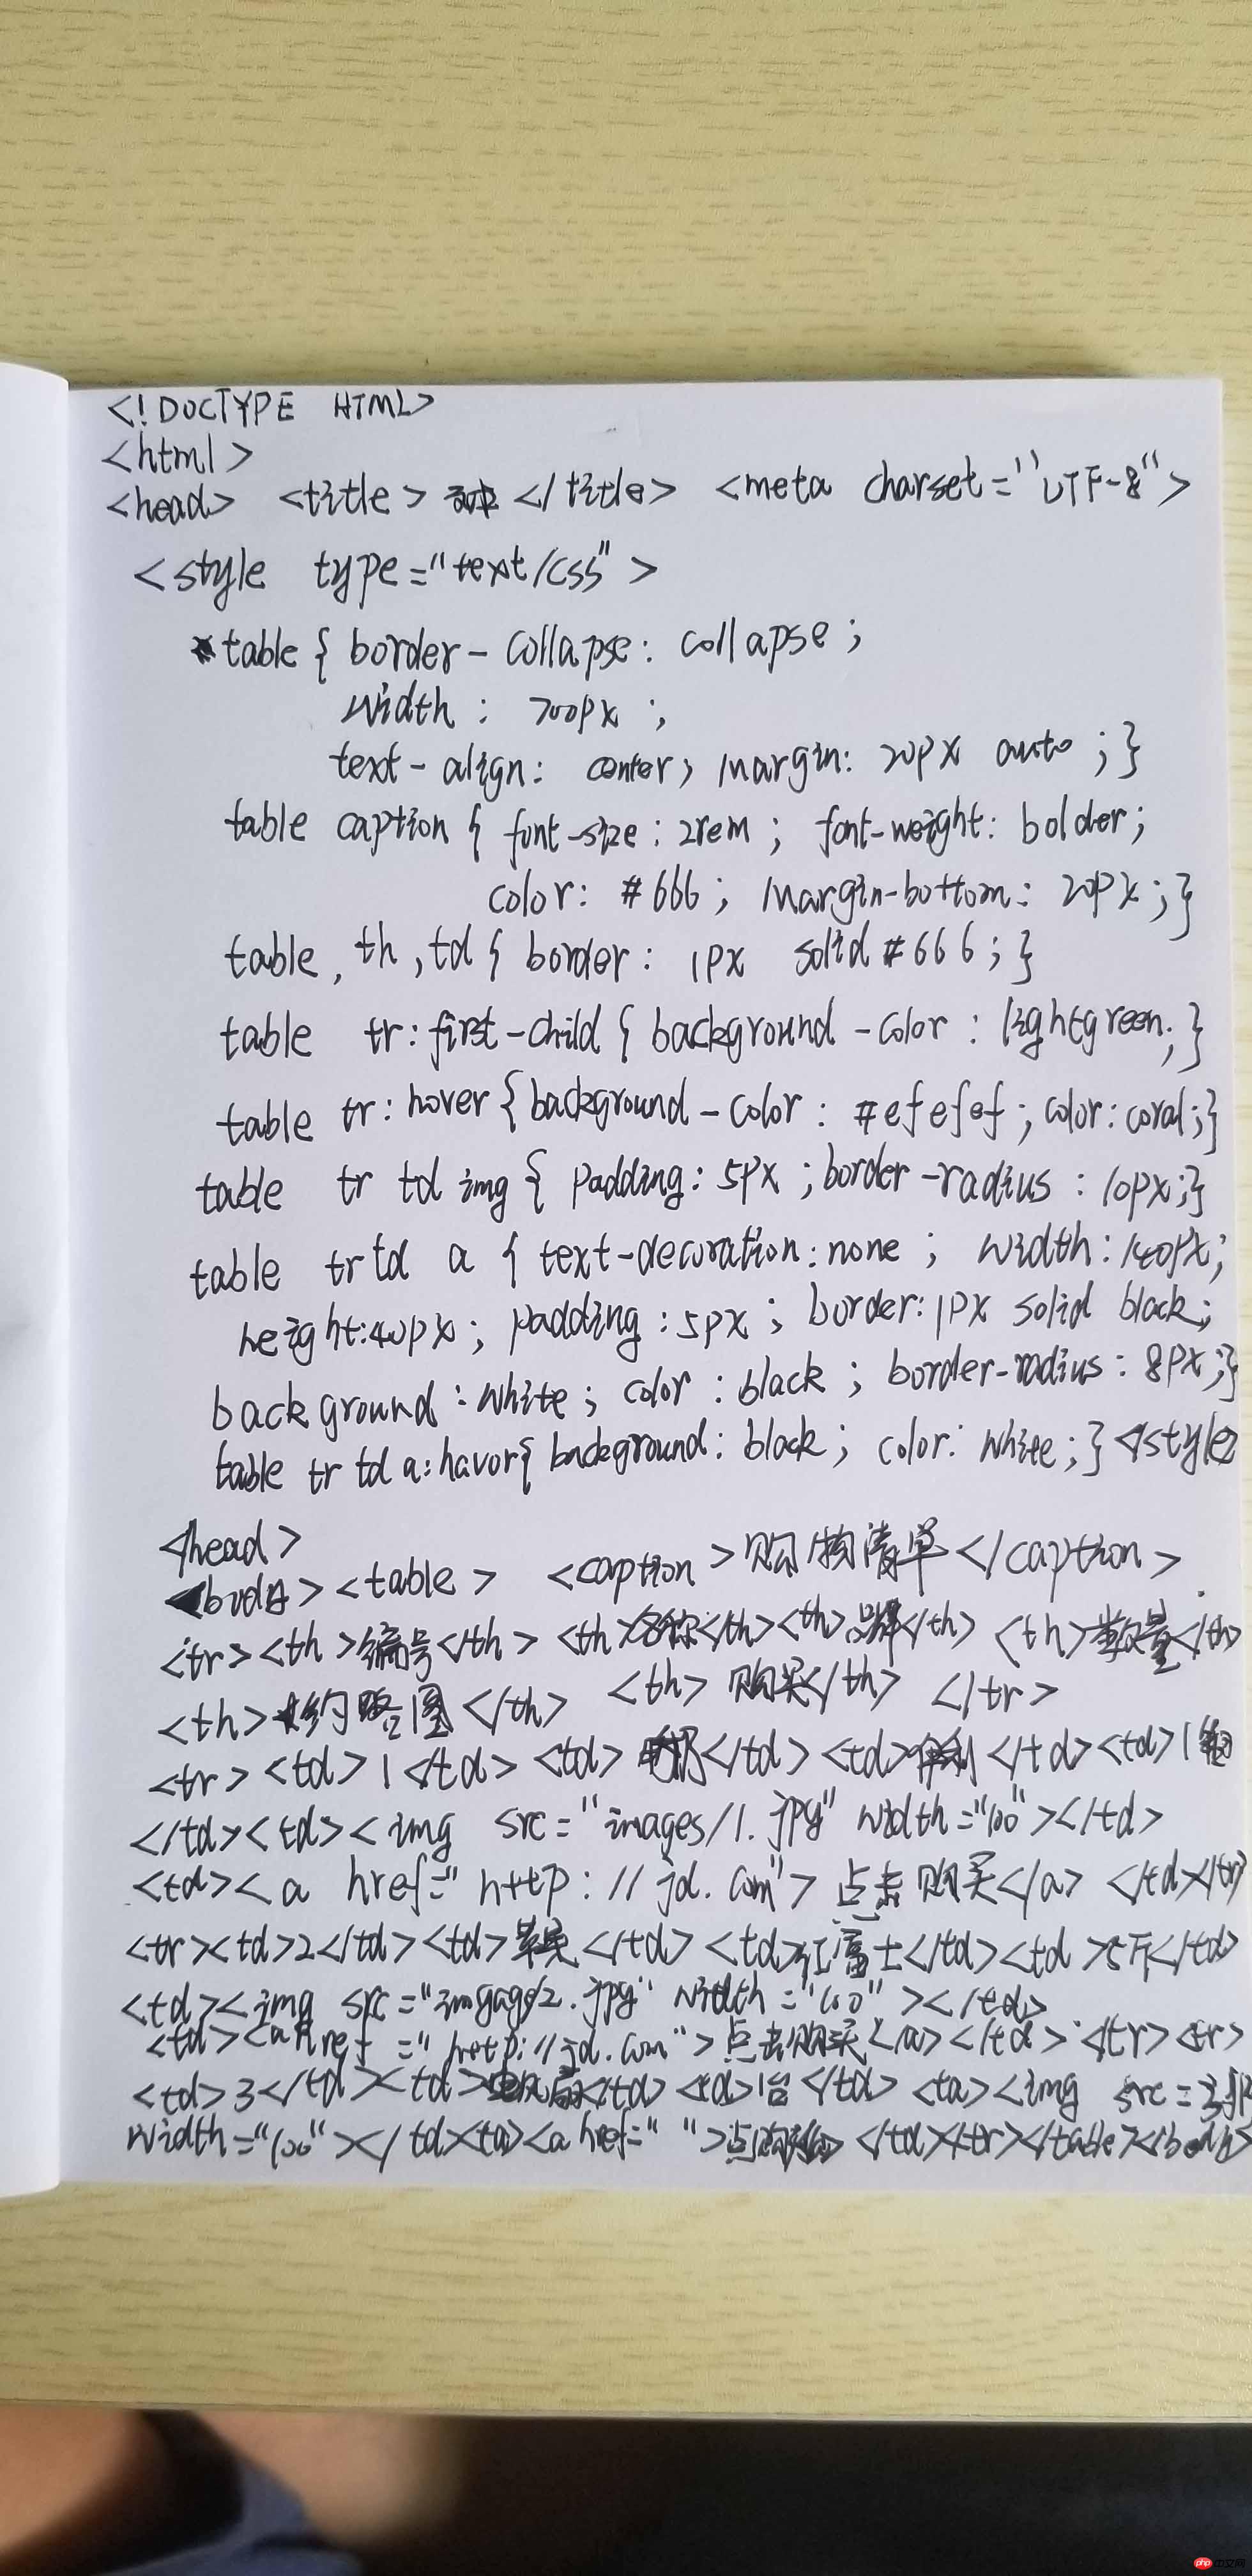 <!DOCTYPE HTML>
<html>
<head> <title> </title> <meta charset="UTF-8">
<style type="text/css">
table { border-collapse: collapse;
width: 700px ;
text-align: center; margin: 20px auto ; }
table caption { font-size: 2rem ; font-weight: bolder;
color: #666 ; margin-bottom: 20px ; }
table, th, td { border: 1px solid #666 ; }
table tr:first-child { background-color : lightgreen; }
table tr: hover { background-color : #efefef ; color: coral; }
table tr td img { padding: 5px ; border-radius : 10px; }
table tr td a { text-decoration: none ; width: 140px;
height: 40px ; padding : 5px ; border: 1px solid black;
background : white ; color : black ; border-radius : 8px; }
table tr td a: havor{ background: black ; color: white ; } </style>
</head>
<body> <table> <caption>购物清单</caption>
<tr> <th>编号</th> <th>名称</th> <th>品牌</th> <th>数量</th>
<th>约略图</th> <th>购买</th> </tr>
<tr> <td>1</td> <td> </td> <td>伊利</td> <td>1箱
</td><td><img src="images/1.jpg" width="100"></td>
<td><a href="http://jd.com">点击购买</a> </td></tr>
<tr><td>2</td><td> </td> <td>红富士</td><td>5斤</td>
<td><img src="imgages/2.jpg" width="100"></td>
<td><a href="http://jd.com">点击购买</a></td></tr><tr>
<td>3</td><td>电风扇</td> <td>1台</td> <td><img src=
width="100"></td><td><a href=" "> </td></tr></table></body>
php 中文网